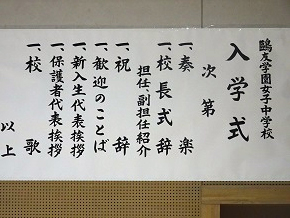 鷗友学園女子中学校
入学式
次第
一、奏楽
一、校長式辞
担任、副担任紹介
一、祝辞
一、歓迎のことば
一、新入生代表挨拶
一、保護者代表挨拶
一、校歌
以上